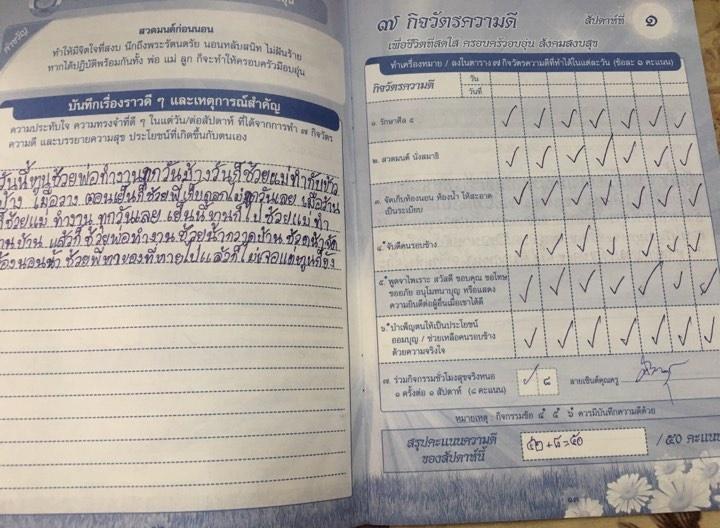 สวดมนต์ก่อนนอน
ทำให้มีจิตใจที่สงบ นึกถึงพระรัตนตรัย นอนหลับสนิท ไม่ฝันร้าย
หากได้ปฏิบัติพร้อมกันทั้ง พ่อ แม่ ลูก ก็จะทำให้ครอบครัวมีอบอุ่น
บันทึกเรื่องราวดี ๆ และเหตุการณ์สำคัญ
ความประทับใจ ความทรงจำที่ดี ๆ ในแต่ละวัน/ต่อสัปดาห์ ที่ได้จากการทำ ๗ กิจวัตร
ความดี และบรรยายความสุข ประโยชน์ที่เกิดขึ้นกับตนเอง
วันนี้หนูช่วยพ่อทำงานทุกวันบ้างวันก็ช่วยแม่ทำกับข้าว
บ้าง ตอนเย็นก็ช่วยพี่เก็บ ทุกวันเลย
ก็ช่วยแม่ ทำงาน ทุกวันเลย เย็นนี้หนูก็ไปช่วยแม่ ทำ
แล้วก็ช่วยพ่อทำงาน ช่วยน้ากวาดบ้าน
ช่วยพี่หาของที่หายไปแล้วก็ไม่เจอแต่หนูก็ยัง
๗ กิจวัตรความดี สัปดาห์ที่ ๑
เพื่อชีวิตที่สดใส ครอบครัวอบอุ่น สังคมสงบสุข
ทำเครื่องหมาย / ลงในตาราง ๗ กิจวัตรความดีที่ทำได้ในแต่ละวัน (ข้อละ ๑ คะแนน)
กิจวัตรความดี วัน
วันที่
๑. รักษาศีล ๕
๒. สวดมนต์ นั่งสมาธิ
๓. จัดเก็บห้องนอน ห้องน้ำ ให้สะอาด
เป็นระเบียบ
๔. จับดีคนรอบข้าง
๕. พูดจาไพเราะ สวัสดี ขอบคุณ ขอโทษ
ขออภัย อนุโมทนาบุญ หรือแสดง
ความยินดีต่อผู้อื่นเมื่อเขาได้ดี
๖. บำเพ็ญตนให้เป็นประโยชน์
ออมบุญ / ช่วยเหลือคนรอบข้าง
ด้วยความจริงใจ
๗. ร่วมกิจกรรมชั่วโมงสุขจริงหนอ
๑ ครั้งต่อ ๑ สัปดาห์ (๘ คะแนน)
๘ ลายเซ็นต์คุณครู
หมายเหตุ : กิจกรรมข้อ ๔ ๕ ๖ ควรมีบันทึกความดีด้วย
สรุปคะแนนความดี
ของสัปดาห์นี้
๔๒ + ๘ = ๕๐ / ๕๐ คะแนน
๑๓